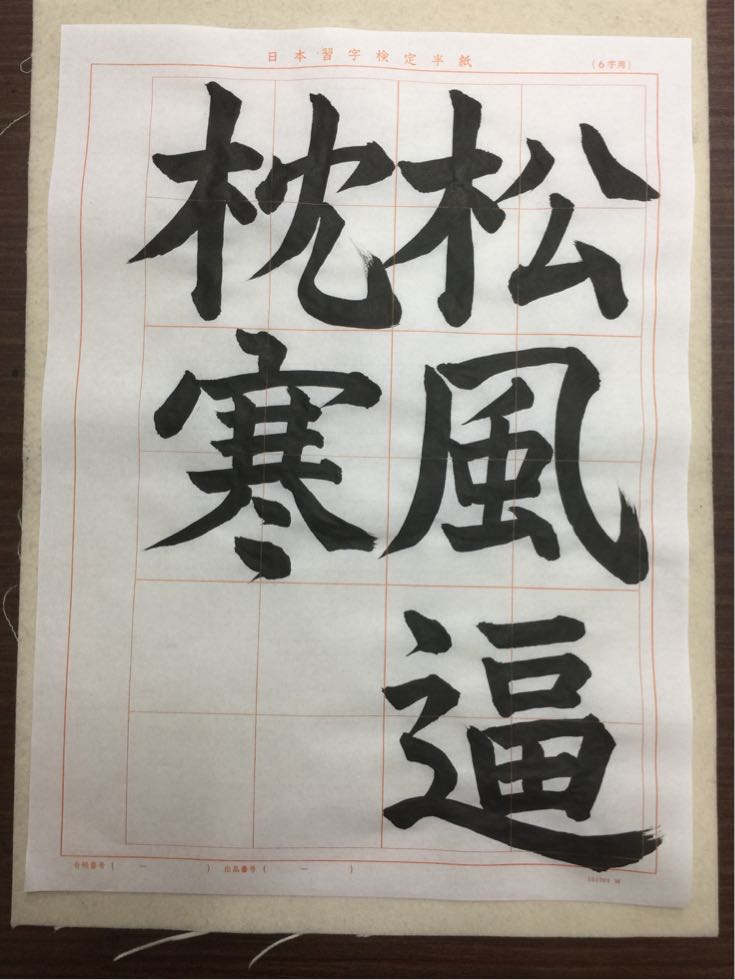 日本習字検定半紙
(6字用)
松風逼
枕寒
合格番号( ー )
出品番号( ー )